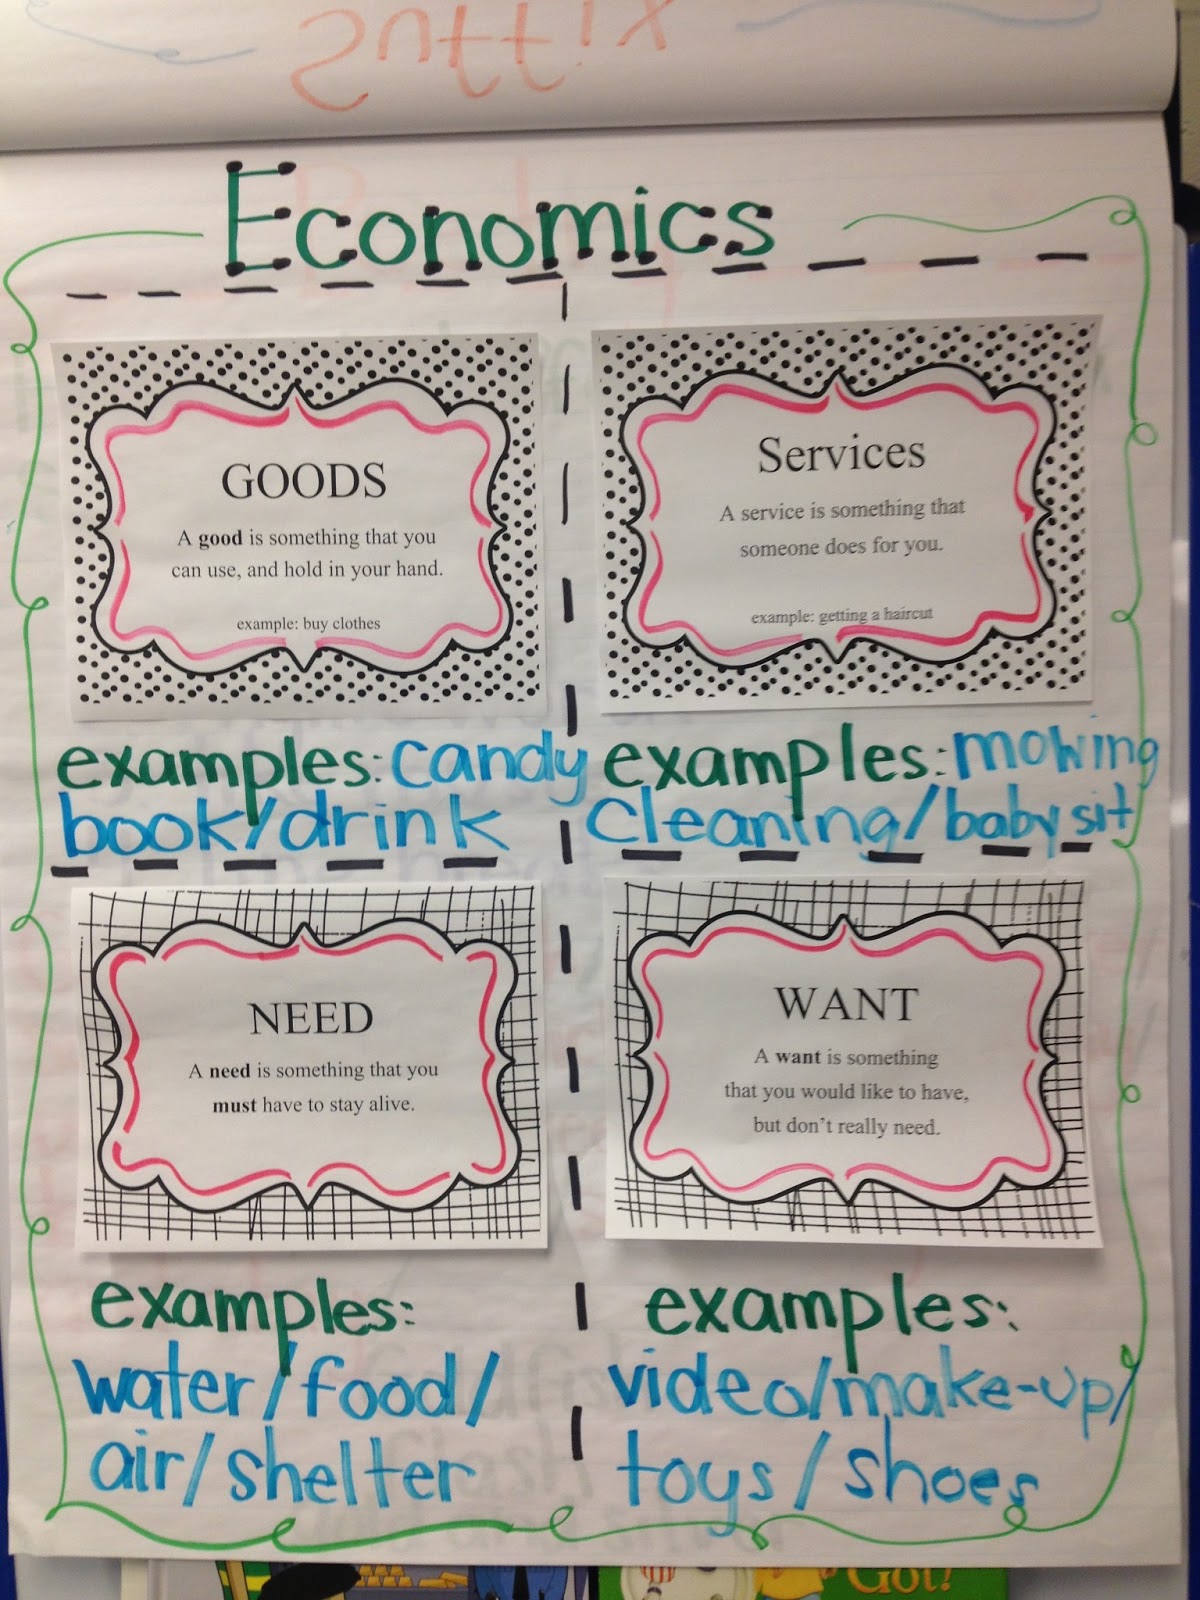 Suffix
Economics
GOODS
A good is something that you
can use, and hold in your hand.
example: buy clothes
examples: candy
book/drink
Services
A service is something that
someone does for you.
example: getting a haircut
examples: mowing
cleaning/babysit
NEED
A need is something that you
must have to stay alive.
examples:
water/food/
air/shelter
WANT
A want is something
that you would like to have,
but don't really need.
examples:
video/make-up/
toys/shoes
Got!